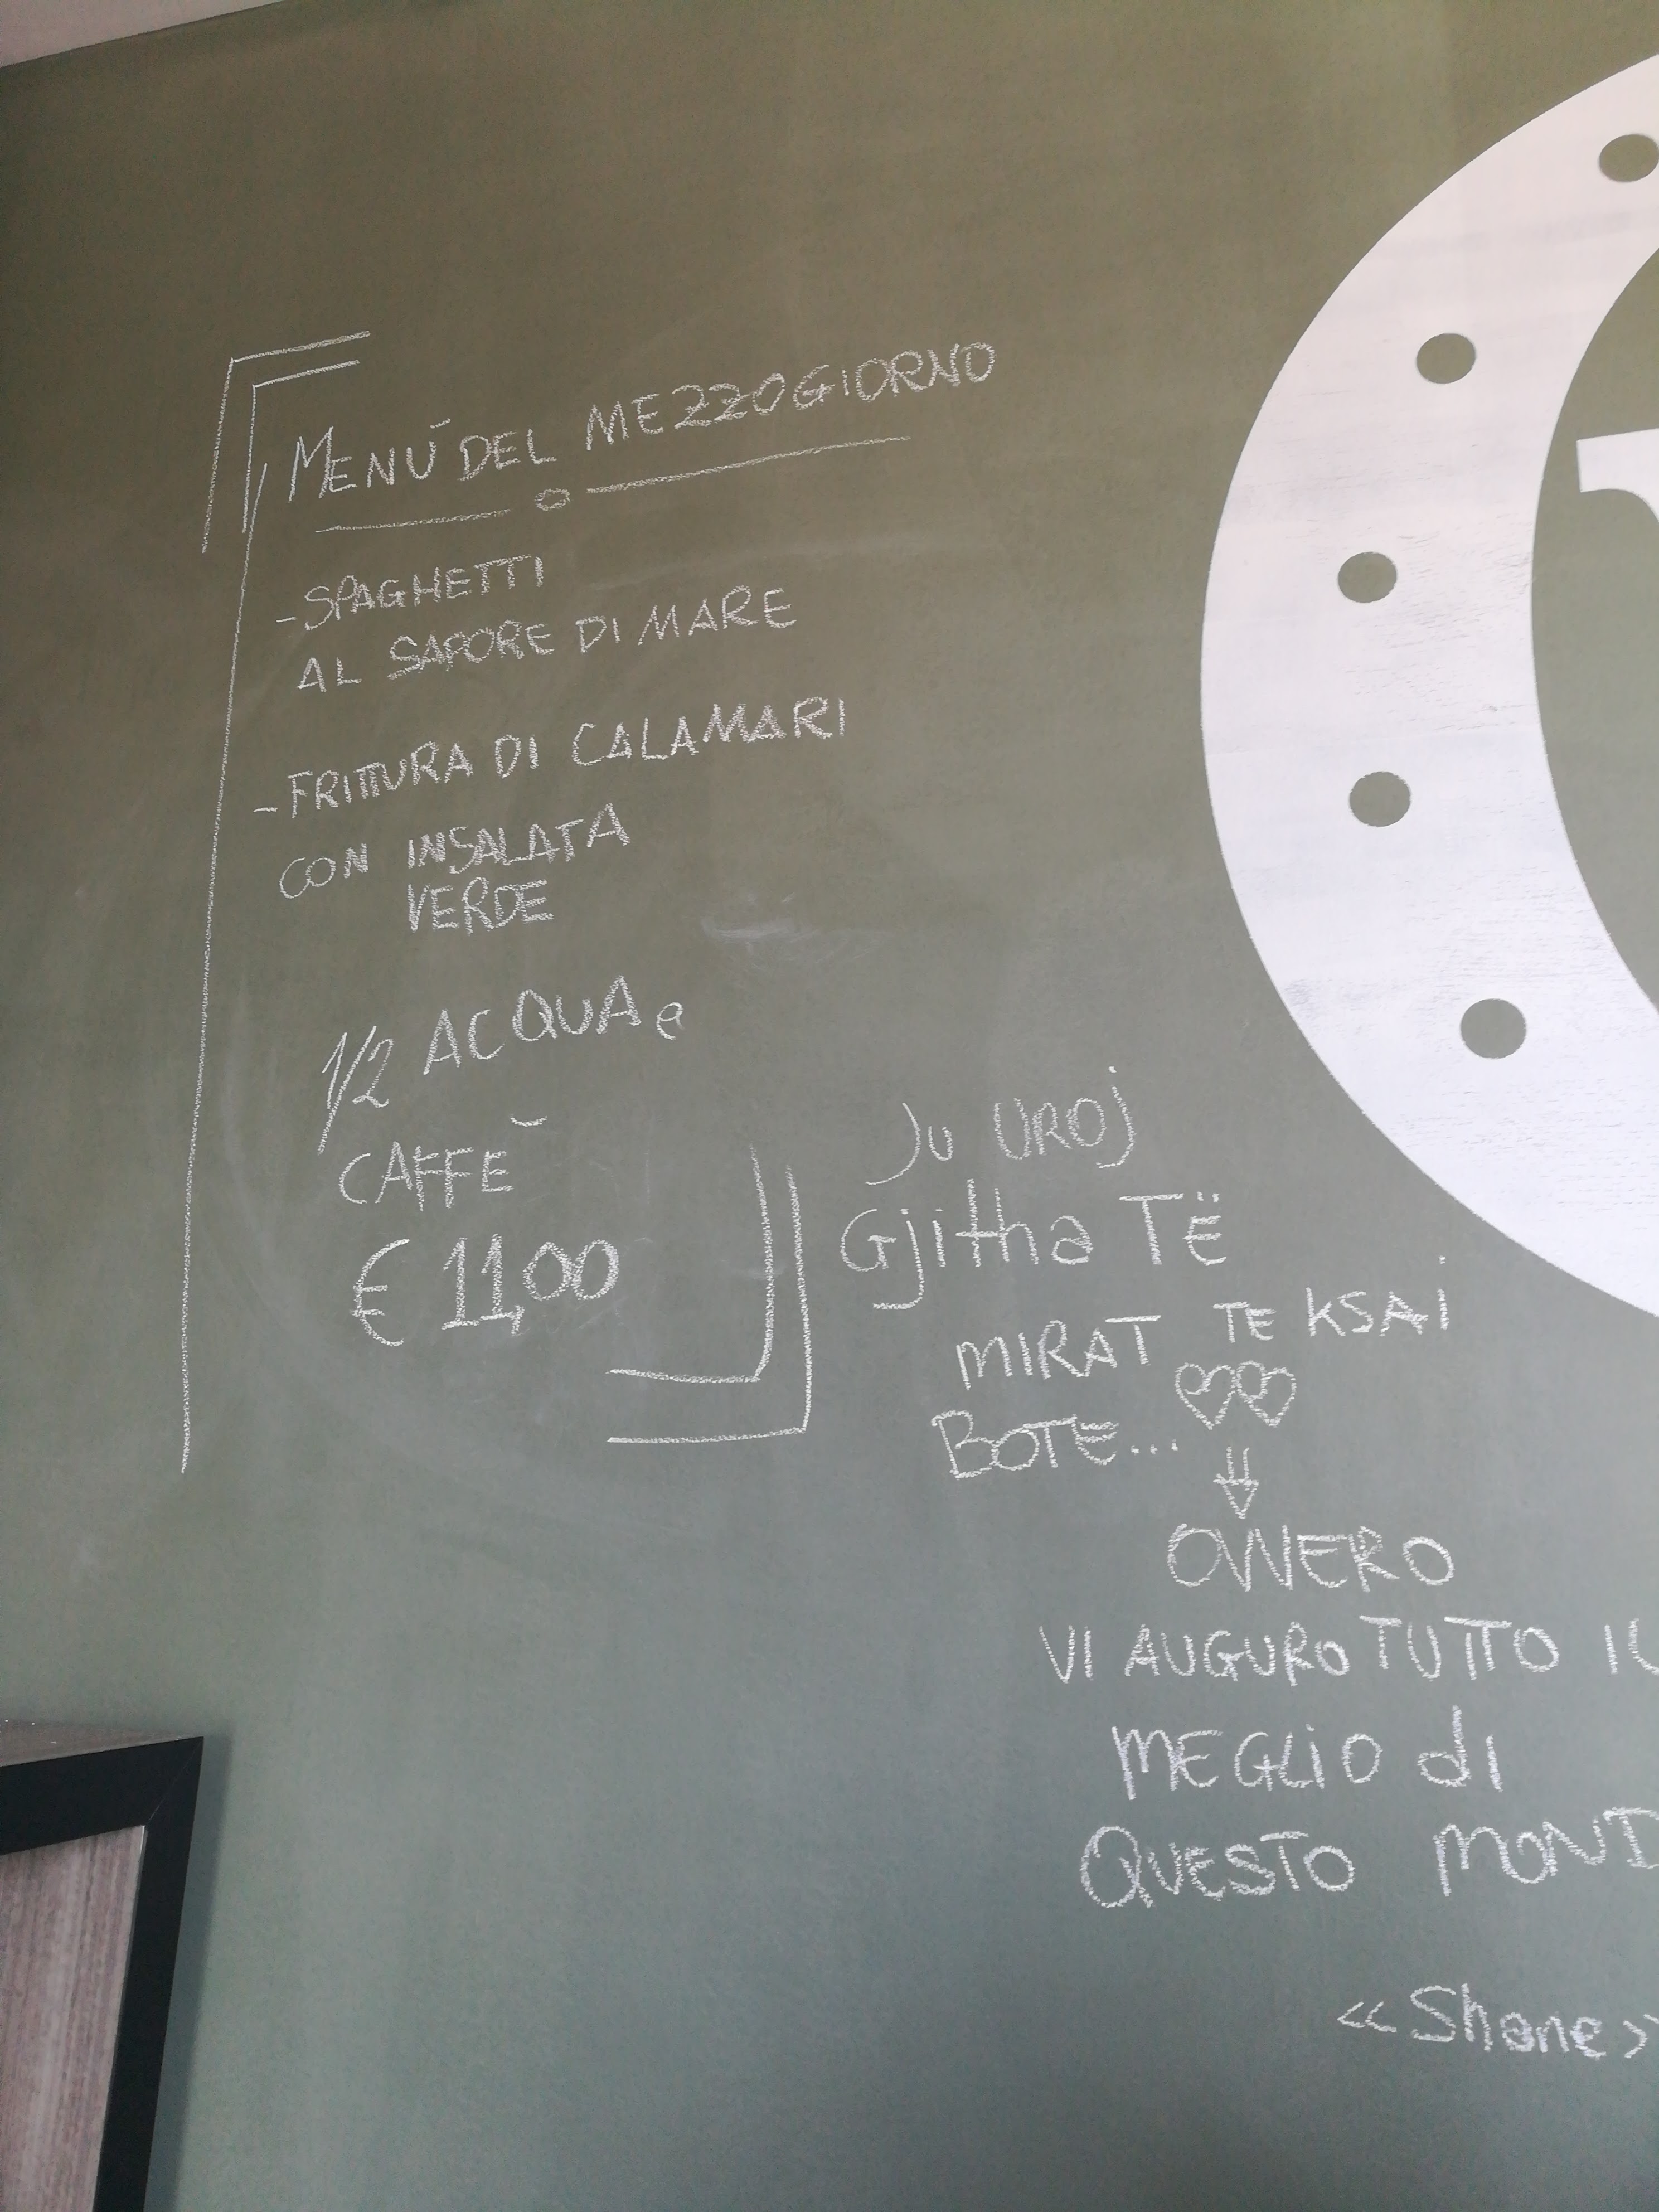 MENÚ DEL MEZZOGIORNO
- SPAGHETTI
AL SAPORE DI MARE
- FRITTURA DI CALAMARI
CON INSALATA
VERDE
1/2 ACQUA e
CAFFE
€ 11,00
Ju UROJ
Gjitha TË
MIRAT TE KSAI
BOTE...
OVVERO
VI AUGURO TUTTO IL
MEGLIO di
QUESTO MOND
<<Shane>>